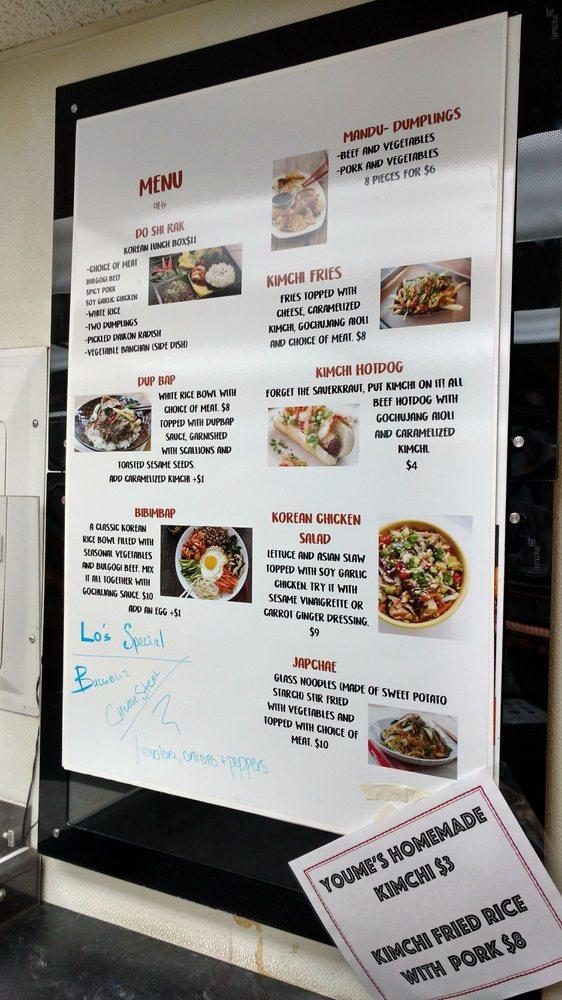 MENU
메뉴
DO SHI RAK
KOREAN LUNCH BOX$11
-CHOICE OF MEAT
BULGOGI BEEF
SPICY PORK
SOY GARLIC CHICKEN
-WHITE RICE
-TWO DUMPLINGS
-PICKLED DAIKON RADISH
-VEGETABLE BANCHAN (SIDE DISH)
DUP BAP
WHITE RICE BOWL WITH
CHOICE OF MEAT. $8
TOPPED WITH DUPBAP
SAUCE, GARNISHED
WITH SCALLIONS AND
TOASTED SESAME SEEDS.
ADD CARAMELIZED KIMCHI +$1
BIBIMBAP
A CLASSIC KOREAN
RICE BOWL FILLED WITH
SEASONAL VEGETABLES
AND BULGOGI BEEF. MIX
IT ALL TOGETHER WITH
GOCHUJANG SAUCE. $10
ADD AN EGG +$1
Lo's Special
Cheese Steak
onions + peppers
MANDU- DUMPLINGS
-BEEF AND VEGETABLES
-PORK AND VEGETABLES
8 PIECES FOR $6
KIMCHI FRIES
FRIES TOPPED WITH
CHEESE, CARAMELIZED
KIMCHI, GOCHUJANG AIOLI
AND CHOICE OF MEAT. $8
KIMCHI HOTDOG
FORGET THE SAUERKRAUT, PUT KIMCHI ON IT! ALL
BEEF HOTDOG WITH
GOCHUJANG AIOLI
AND CARAMELIZED
KIMCHI.
$4
KOREAN CHICKEN
SALAD
LETTUCE AND ASIAN SLAW
TOPPED WITH SOY GARLIC
CHICKEN. TRY IT WITH
SESAME VINAIGRETTE OR
CARROT GINGER DRESSING.
$9
JAPCHAE
GLASS NOODLES (MADE OF SWEET POTATO
STARCH) STIR FRIED
WITH VEGETABLES AND
TOPPED WITH CHOICE OF
MEAT. $10
YOUME'S HOMEMADE
KIMCHI $3
KIMCHI FRIED RICE
WITH PORK $8